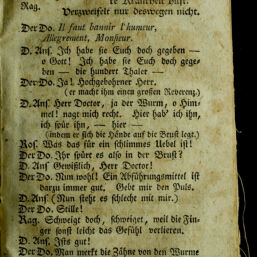 te Krankheit büst.
Rag. Verzweifelt nur deswegen nicht.
Der Do. Il faut bannir l'humeur,
Allegrement, Monsieur.
D. Ans. Ich habe sie Euch doch gegeben —
o Gott! Ich habe sie Euch doch gege-
ben — die hundert Thaler —
Der Do. Ja!, Hochgebohrner Herr.
(er macht ihm einen großen Reverenz.)
D. Ans. Herr Doctor, ja der Wurm, o Him-
mel! nagt mich recht. Hier hab' ich ihn,
ich spür ihn, — hier —
(indem er sich die Hände auf die Brust legt.)
Ros. Was das für ein schlimmes Uebel ist!
Der Do. Ihr spürt es also in der Brust?
D. Ans. Gewißlich, Herr Doctor!
Der Do. Nun wohl! Ein Abführungsmittel ist
dazu immer gut. Gebt mir den Puls.
D. Ans. (Nun steht es schlecht mit mir.)
Der Do. Stille!
Rag. Schweigt doch, schweiget, weil die Fin-
ger sonst leicht das Gefühl verlieren.
D. Ans. Ists gut!
Der Do. Man merkt die Zähne von den Wurme